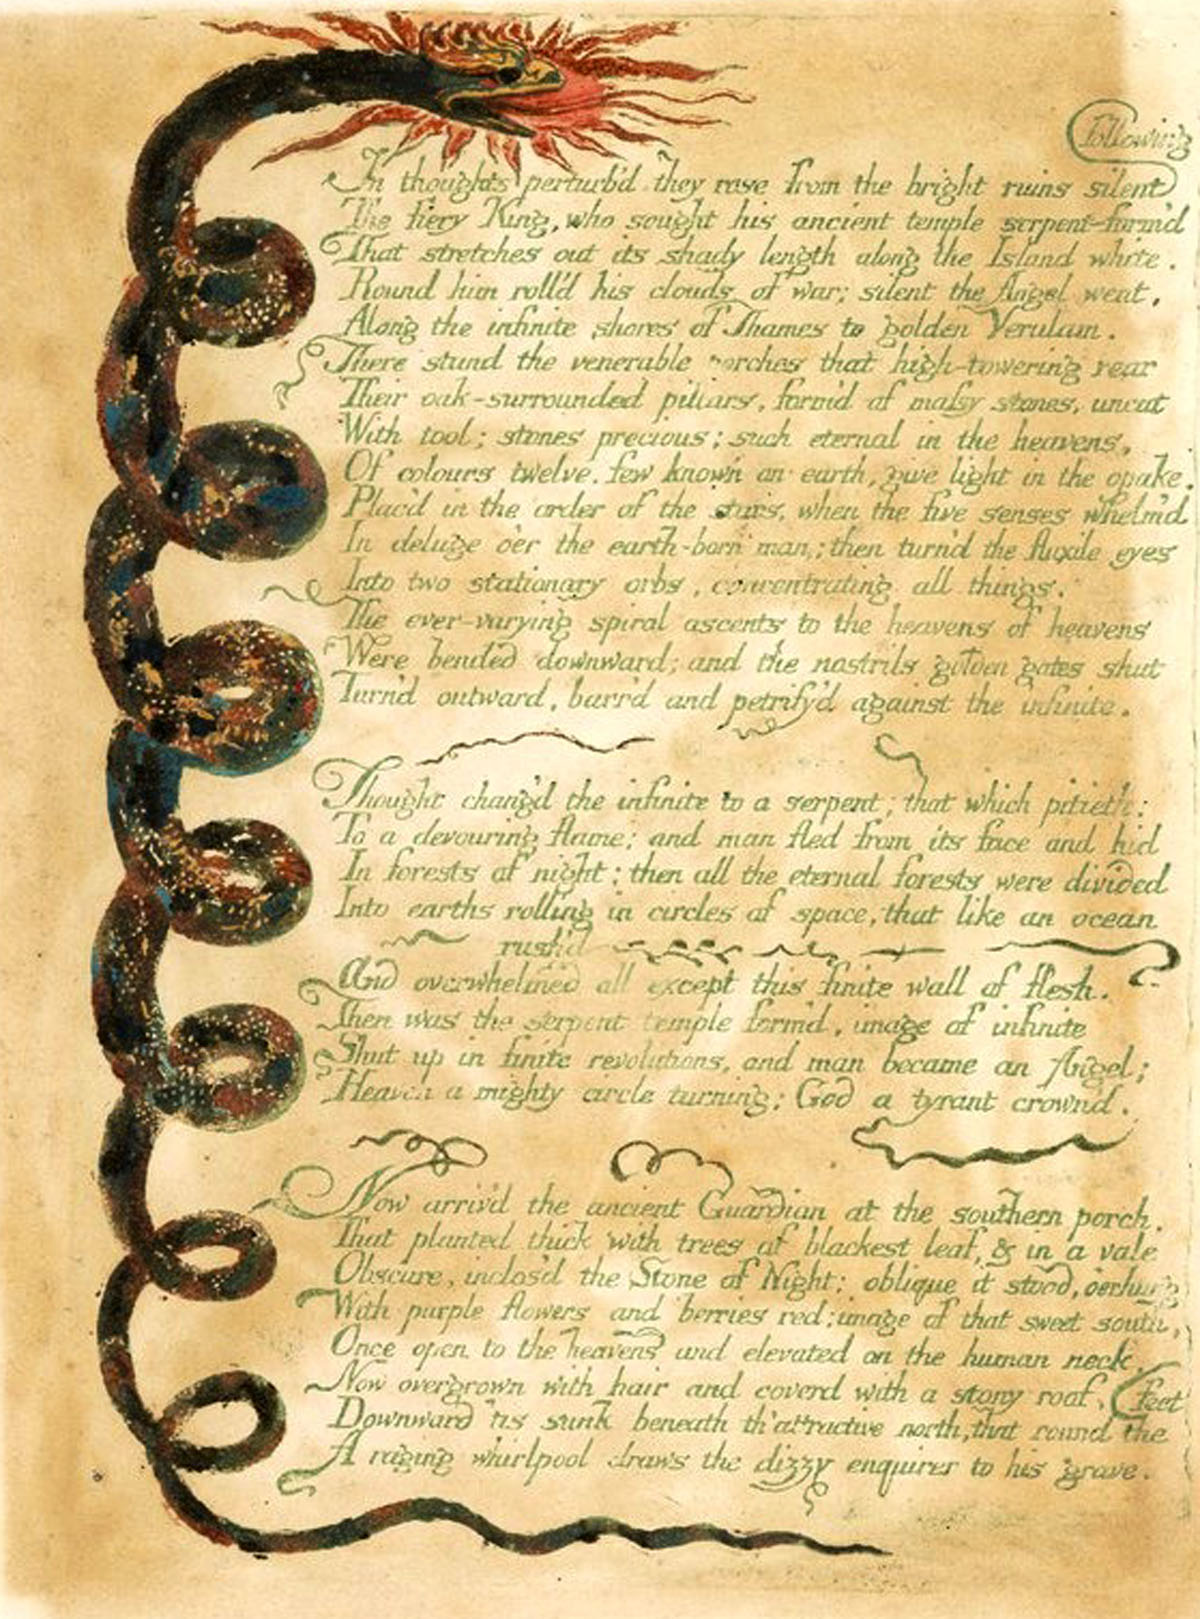 following
In thoughts perturb'd they rose from the bright ruins silent
The fiery King, who sought his ancient temple serpent-form'd
That stretches out its shady length along the Island white.
Round him roll'd his clouds of war; silent the Angel went,
Along the infinite shores of Thames to golden Verulam.
There stand the venerable porches that high-towering rear
Their oak-surrounded pillars, form'd of massy stones, uncut
With tool; stones precious; such eternal in the heavens,
Of colours twelve, few known on earth, give light in the opake,
Plac'd in the order of the stars, when the five senses whelm'd
In deluge o'er the earth-born man; then turn'd the fluxile eyes
Into two stationary orbs, concentrating all things.
The ever-varying spiral ascents to the heavens of heavens
Were bended downward; and the nostrils golden gates shut
Turn'd outward, barr'd and petrify'd against the infinite.
Thought chang'd the infinite to a serpent; that which pitieth:
To a devouring flame; and man fled from its face and hid
In forests of night; then all the eternal forests were divided
Into earths rolling in circles of space, that like an ocean
rush'd
And overwhelmed all except this finite wall of flesh.
Then was the serpent temple form'd, image of infinite
Shut up in finite revolutions, and man became an Angel;
Heaven a mighty circle turning; God a tyrant crown'd.
Now arriv'd the ancient Guardian at the southern porch,
That planted thick with trees of blackest leaf, & in a vale
Obscure, inclos'd the Stone of Night; oblique it stood, o'erhung
With purple flowers and berries red; image of that sweet south,
Once open to the heavens and elevated on the human neck,
Now overgrown with hair and coverd with a stony roof,
Downward 'tis sunk beneath th' attractive north, that round the feet
A raging whirlpool draws the dizzy enquirer to his grave.